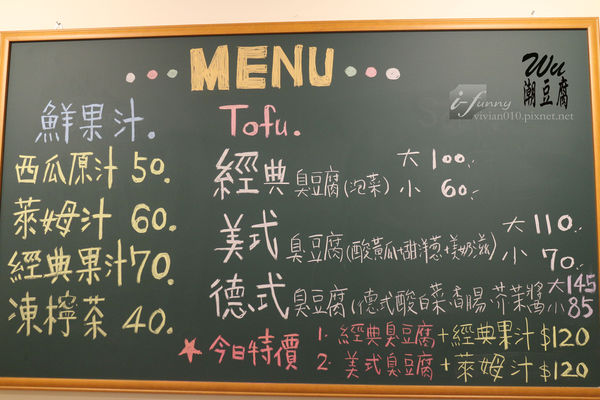 MENU
Wu
潮豆腐
i-funny
vivian010.pixnet.net
鮮果汁.
西瓜原汁 50.
萊姆汁 60.
經典果汁 70.
凍檸茶 40.
Tofu.
經典 臭豆腐(泡菜) 大 100.
小 60.
美式 臭豆腐(酸黃瓜+甜洋蔥+美奶滋) 大 110.
小 70.
德式 臭豆腐(德式酸白菜.香腸.芥茉醬 大 145
小 85
★今日特價 1. 經典臭豆腐+經典果汁 $120
2. 美式臭豆腐+萊姆汁 $120